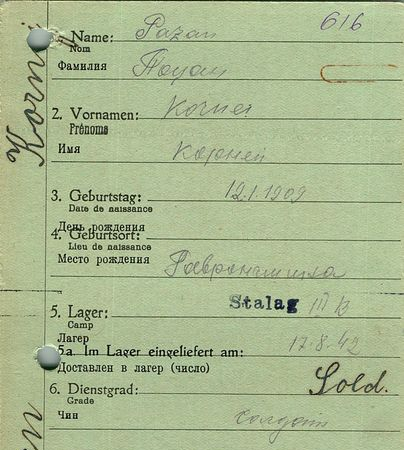 616
1. Name: Pazan
Nom
Фамилия
2. Vornamen: Kornei
Prénoms
Имя Корней
3. Geburtstag: 12.1.1909
Date de naissance
День рождения
4. Geburtsort:
Lieu de naissance
Место рождения
5. Lager: Stalag III B
Camp
Лагер
5a. Im Lager eingeliefert am: 17.8.42
Доставлен в лагер (число)
6. Dienstgrad: Sold.
Grade
Чин солдат